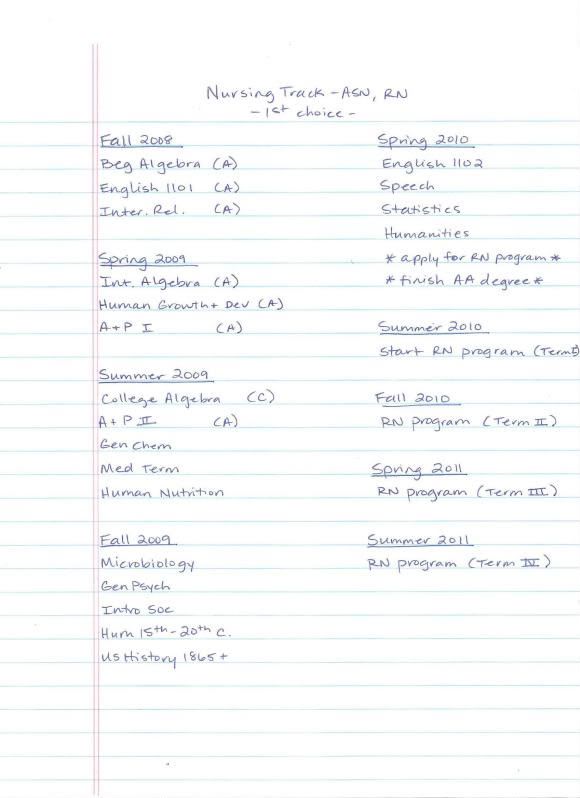 Nursing Track - ASN, RN
- 1st choice -
Fall 2008
Beg Algebra (A)
English 1101 (A)
Inter. Rel. (A)
Spring 2009
Int. Algebra (A)
Human Growth + Dev (A)
A+P I (A)
Summer 2009
College Algebra (C)
A+P II (A)
Gen Chem
Med Term
Human Nutrition
Fall 2009
Microbiology
Gen Psych
Intro Soc
Hum 15th-20th c.
US History 1865+
Spring 2010
English 1102
Speech
Statistics
Humanities
* apply for RN program *
* finish AA degree *
Summer 2010
Start RN program (Term I)
Fall 2010
RN program (Term II)
Spring 2011
RN program (Term III)
Summer 2011
RN program (Term IV)